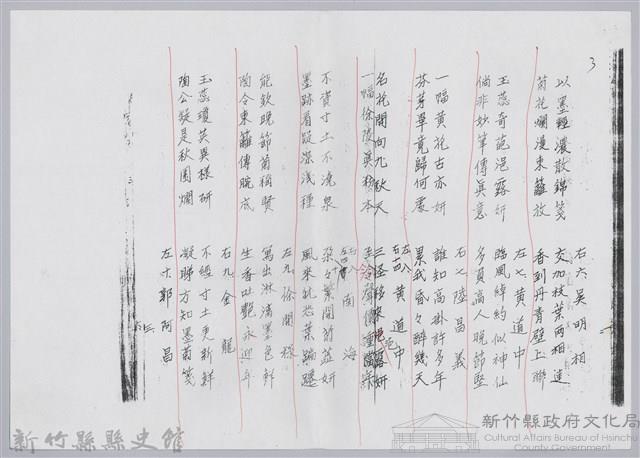 3
以墨輕濃散錦箋
交加枝葉兩相連
右六吳明相
菊花爛漫東籬放
香到丹青壁上聯
左七黃道中
玉蕊奇葩浥露妍
臨風綽約似神仙
倘非妙筆傳真意
多負高人晚節堅
右七陸昌義
一幅黃花古亦妍
誰知高掛許多年
芬芳畢竟歸何處
累我昏々醉幾天
左八
右十四 黃道中
名花開向九秋天
三徑移來
一幅徐陵真粉本
周海
不資寸土不澆泉
朶々繁開蔚益妍
墨跡看疑深淺種
風來就恐葉蹁躚
左九徐開祿
能欽晚節菊稱賢
寫出淋漓墨色鮮
陶令東籬傳脫底
生香吐艷永迎年
右九金龍
玉蕊瓊英異樣研
不經寸土更新鮮
陶公疑是秋園爛
凝睇方知墨菊箋
左十郭阿昌
新竹縣縣史館
新竹縣政府文化局
Cultural Affairs Bureau of Hsinchu
County Government